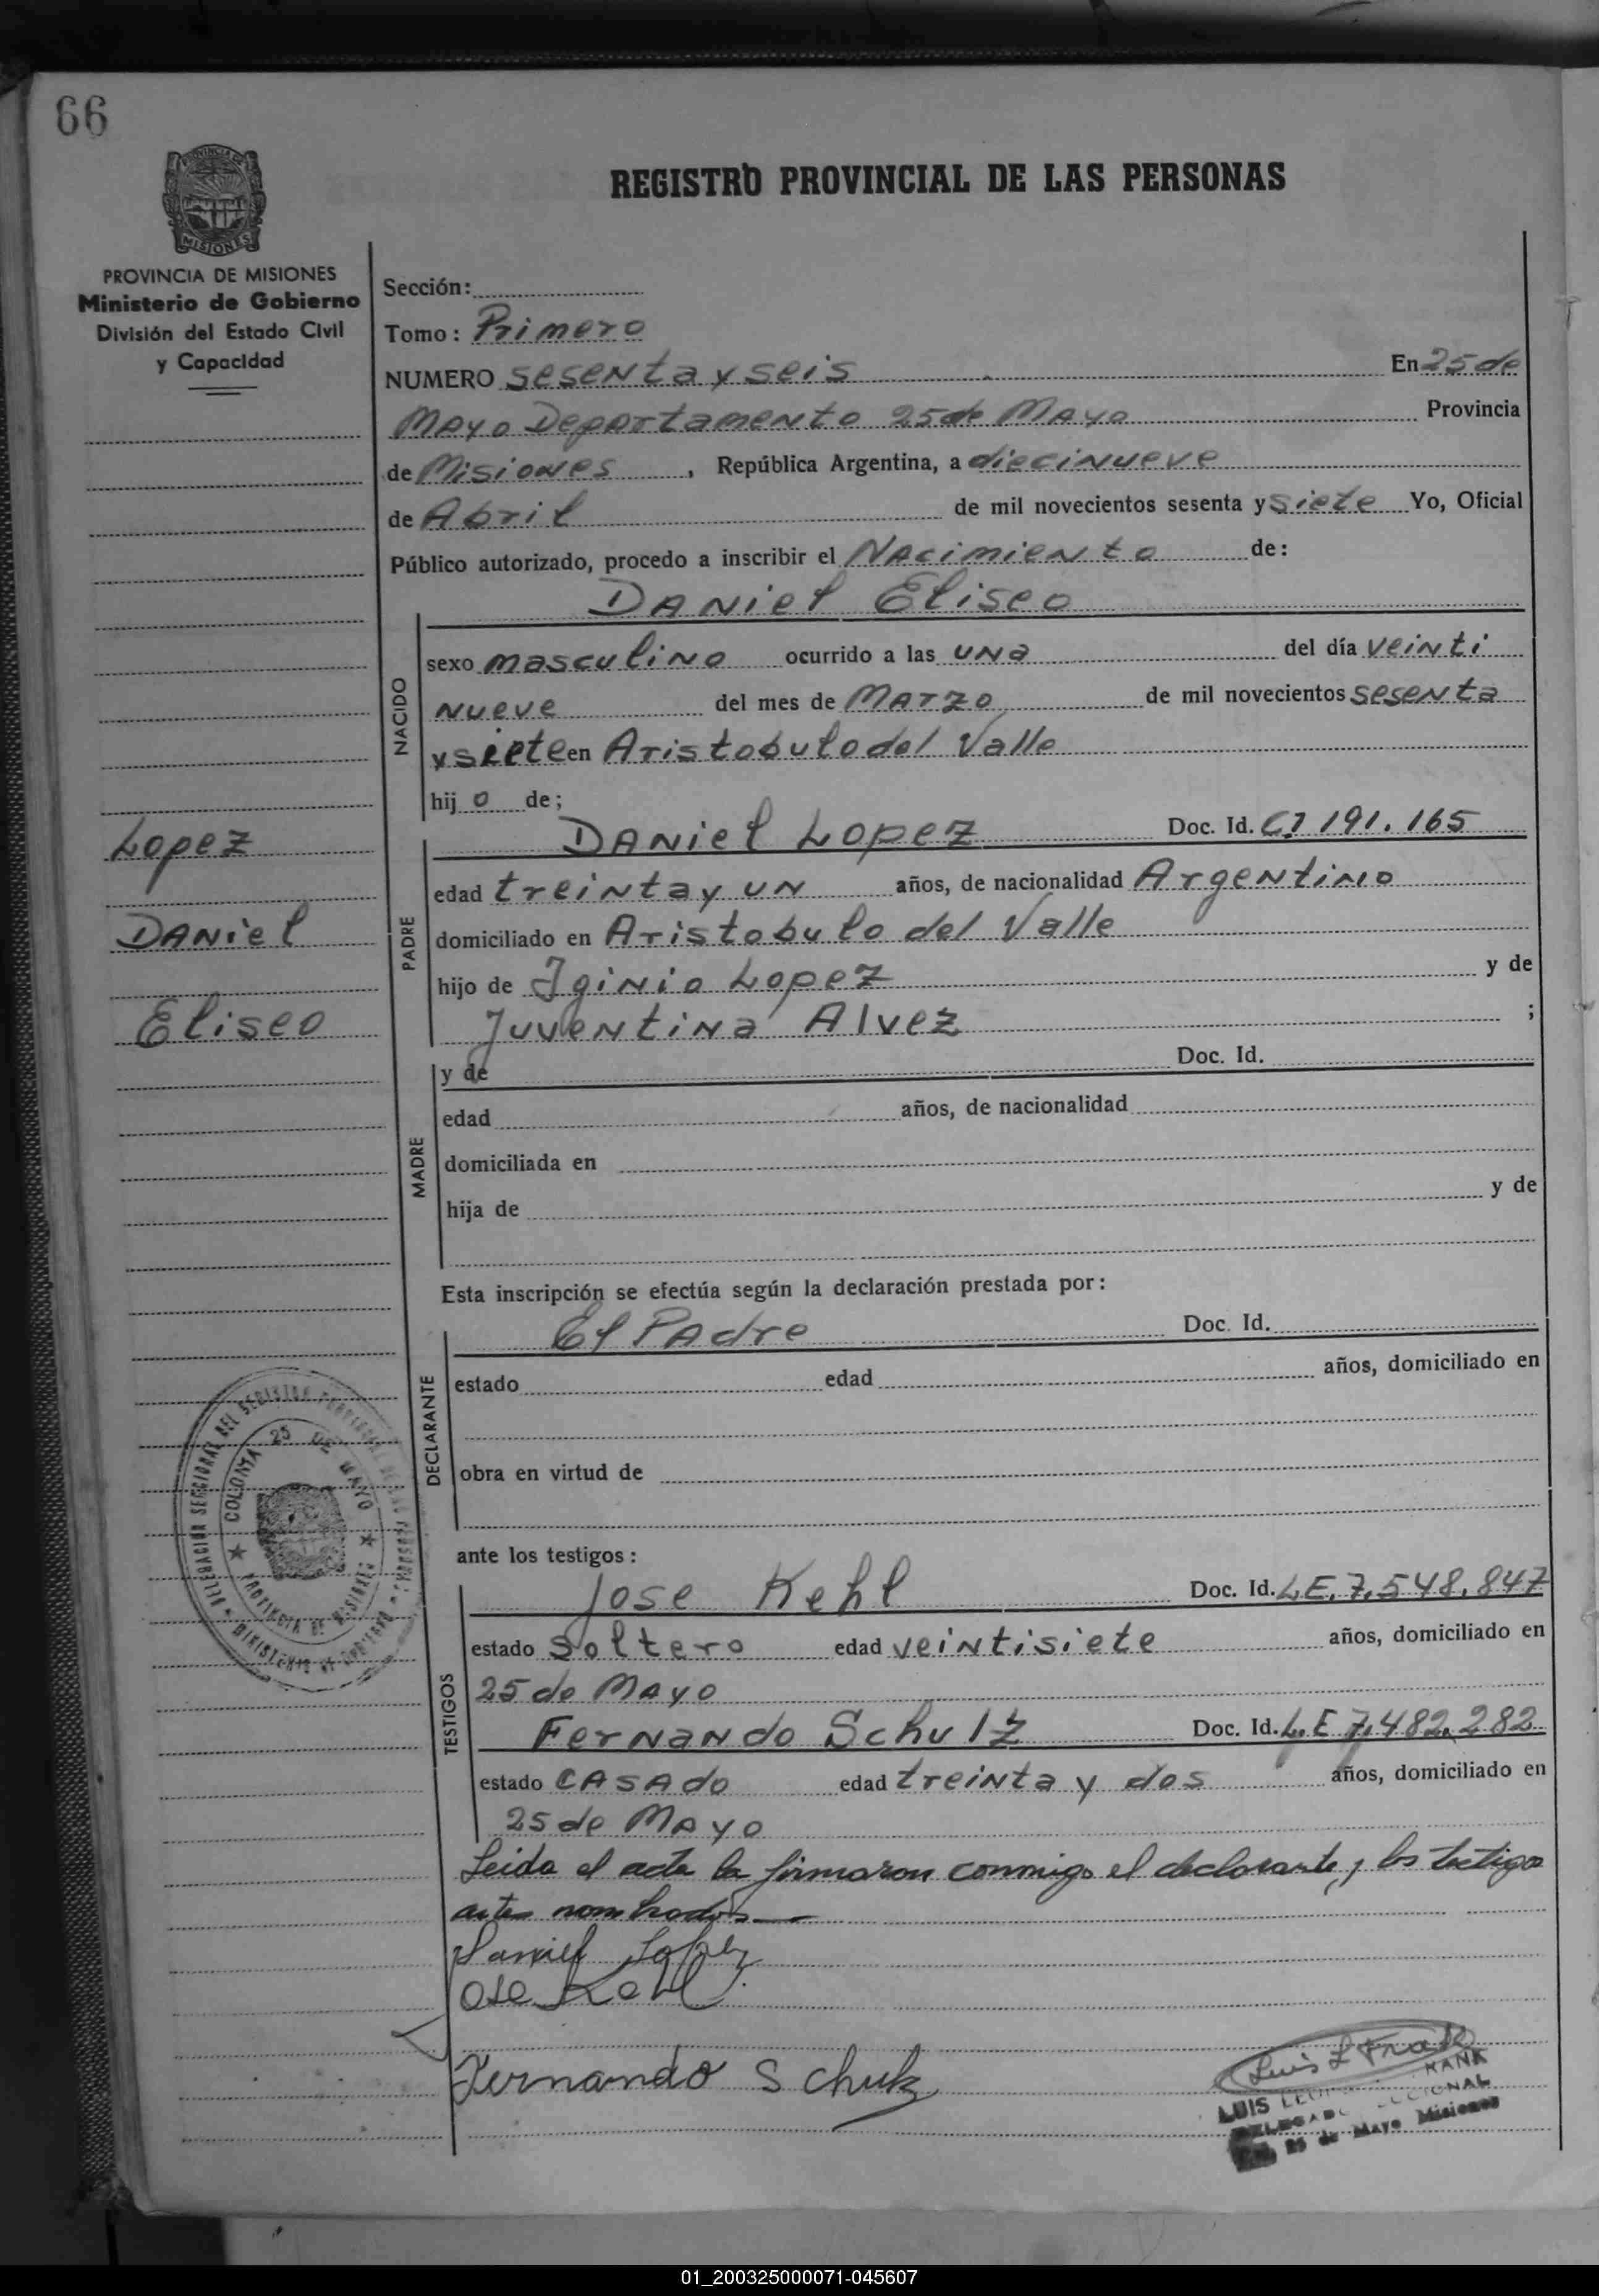 66
PROVINCIA DE
MISIONES
REGISTRO PROVINCIAL DE LAS PERSONAS
PROVINCIA DE MISIONES
Ministerio de Gobierno
División del Estado Civil
y Capacidad
Sección:
Tomo: Primero
NUMERO sesenta y seis En 25 de
Mayo Departamento 25 de Mayo Provincia
de Misiones, República Argentina, a diecinueve
de Abril de mil novecientos sesenta y siete Yo, Oficial
Público autorizado, procedo a inscribir el Nacimiento de:
Daniel Eliseo
NACIDO
sexo masculino ocurrido a las una del día veinti
nueve del mes de Marzo de mil novecientos sesenta
y siete en Aristobulo del Valle
hijo de;
Lopez
Daniel
Eliseo
PADRE
Daniel Lopez Doc. Id. C.I 191.165
edad treinta y un años, de nacionalidad Argentino
domiciliado en Aristobulo del Valle
hijo de Iginio Lopez y de
Juventina Alvez ;
MADRE
y de Doc. Id.
edad años, de nacionalidad
domiciliada en
hija de y de
Esta inscripción se efectúa según la declaración prestada por:
DECLARANTE
El Padre Doc. Id.
estado edad años, domiciliado en
obra en virtud de
COLONIA 25 DE MAYO
PROVINCIA DE MISIONES
ante los testigos:
TESTIGOS
Jose Kehl Doc. Id. L.E. 7.548.847
estado soltero edad veintisiete años, domiciliado en
25 de Mayo
Fernando Schulz Doc. Id. L.E 7.482.282
estado casado edad treinta y dos años, domiciliado en
25 de Mayo
Leida el acta la firmaron conmigo el declarante, y los testigos
antes nombrados
Daniel Lopez
Jose Kehl
Fernando Schulz
Luis L Frank
LUIS
25 de Mayo Misiones
01_200325000071-045607